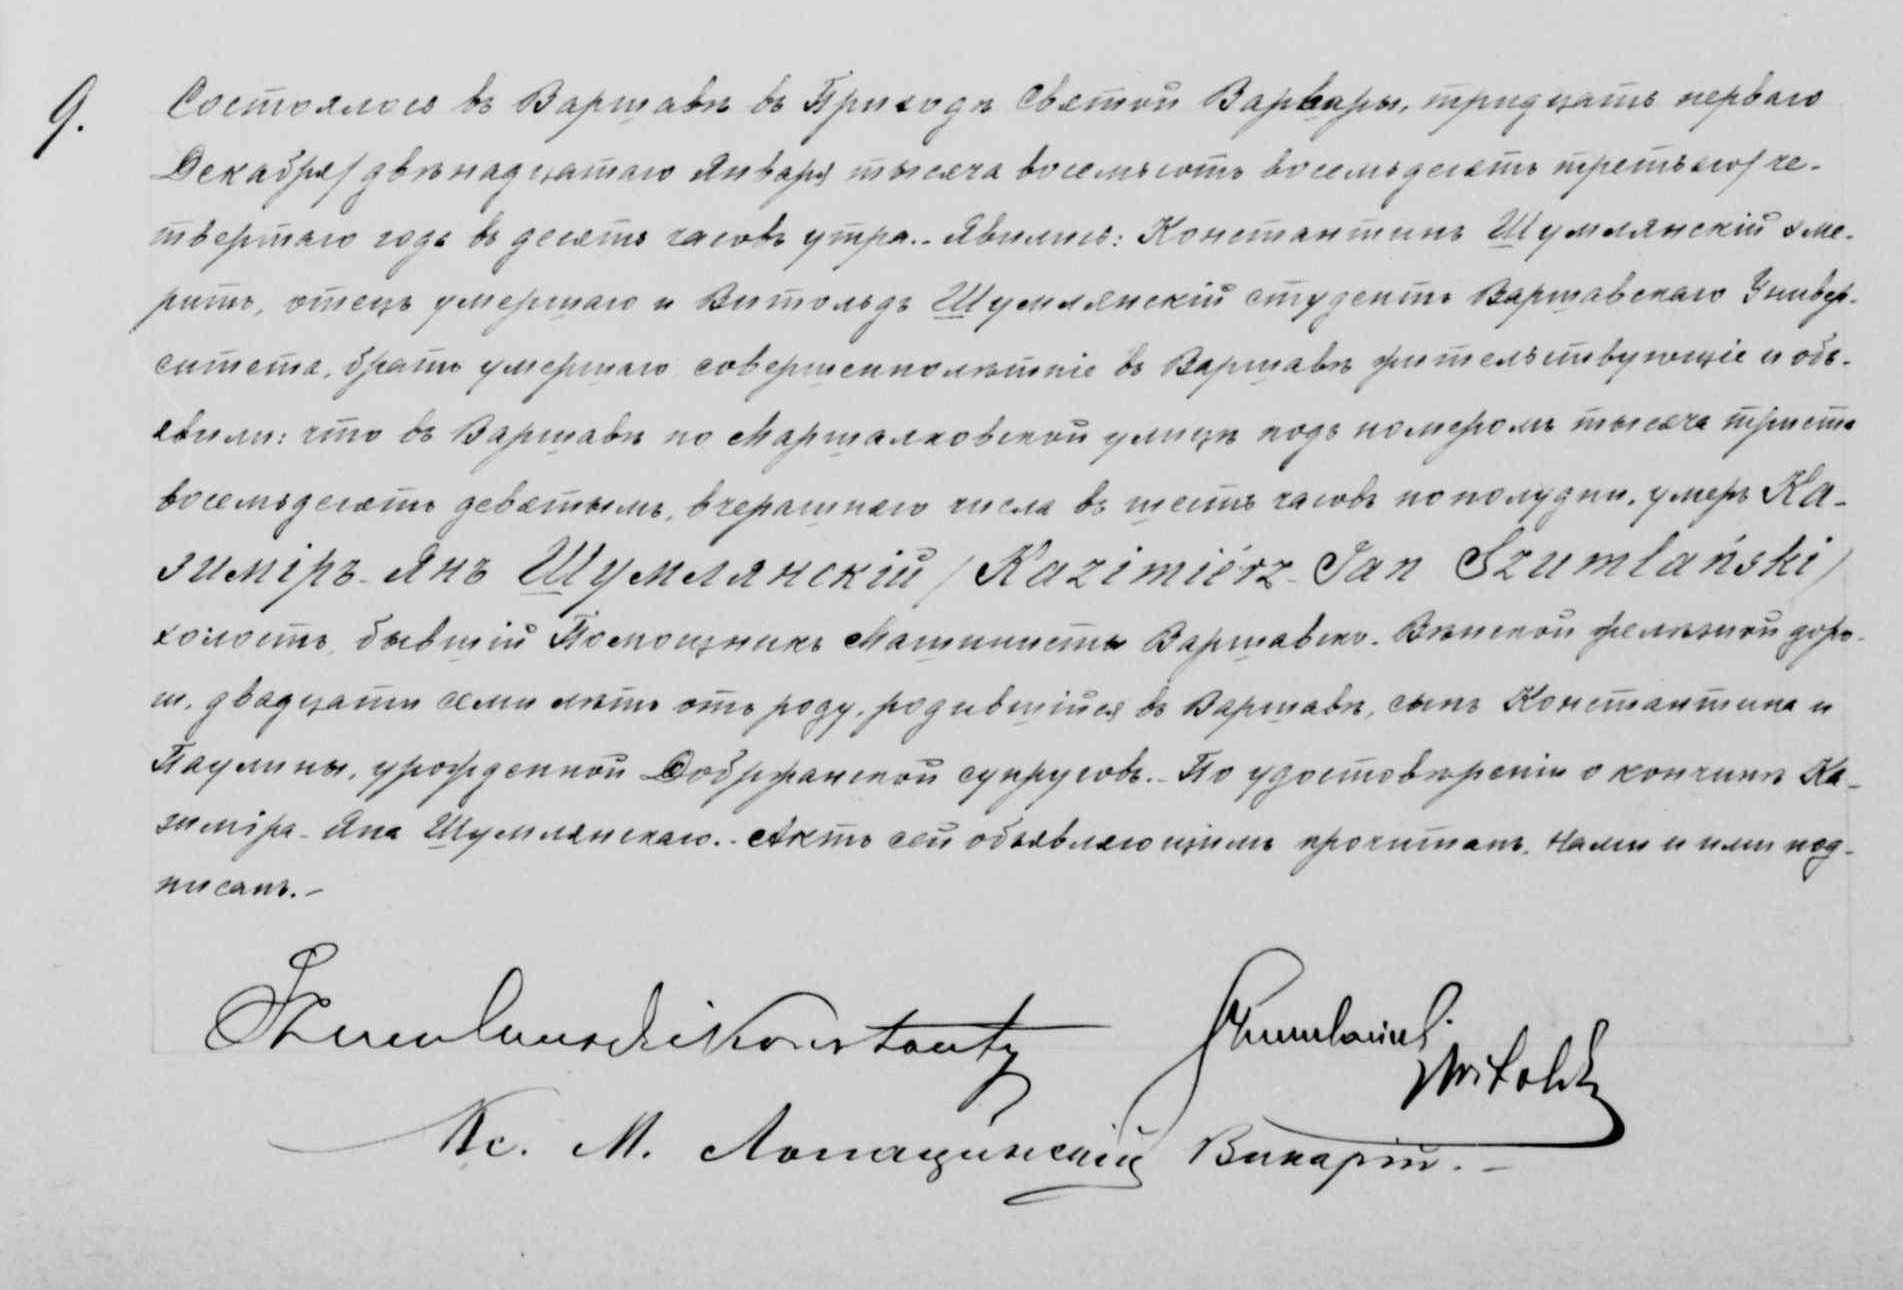 9.
Состоялось въ Варшавѣ въ Приходѣ Святой Варвары, тридцать перваго
Декабря/двѣнадцатаго Января тысяча восемьсотъ восемьдесятъ третьяго/че-
твертаго года въ десять часовъ утра.- Явились: Константинъ Шумлянскій эме-
ритъ, отецъ умершаго и Витольдъ Шумлянскій студентъ Варшавскаго Универ-
ситета, братъ умершаго совершеннолѣтніе въ Варшавѣ жительствующіе и объ-
явили: что въ Варшавѣ по Маршалковской улицѣ подъ номеромъ тысяча триста
восемьдесятъ девятымъ, вчерашняго числа въ шесть часовъ пополудни, умеръ Ка-
зиміръ-Янъ Шумлянскій /Kazimiérz-Jan Szumlański/
холостъ, бывшій Помощникъ Машиниста Варшавско-Вѣнской желѣзной доро-
ги, двадцати семи лѣтъ отъ роду, родившійся въ Варшавѣ, сынъ Константина и
Паулины, урожденной Добржанской супруговъ.- По удостовѣреніи о кончинѣ Ка-
зиміра-Яна Шумлянскаго.- Актъ сей объявляющимъ прочитанъ, Нами и ими под-
писанъ.-
Szumlanski Konstanty
Szumlański
Witold
Кс. М. Лопацинскій Викарій.-